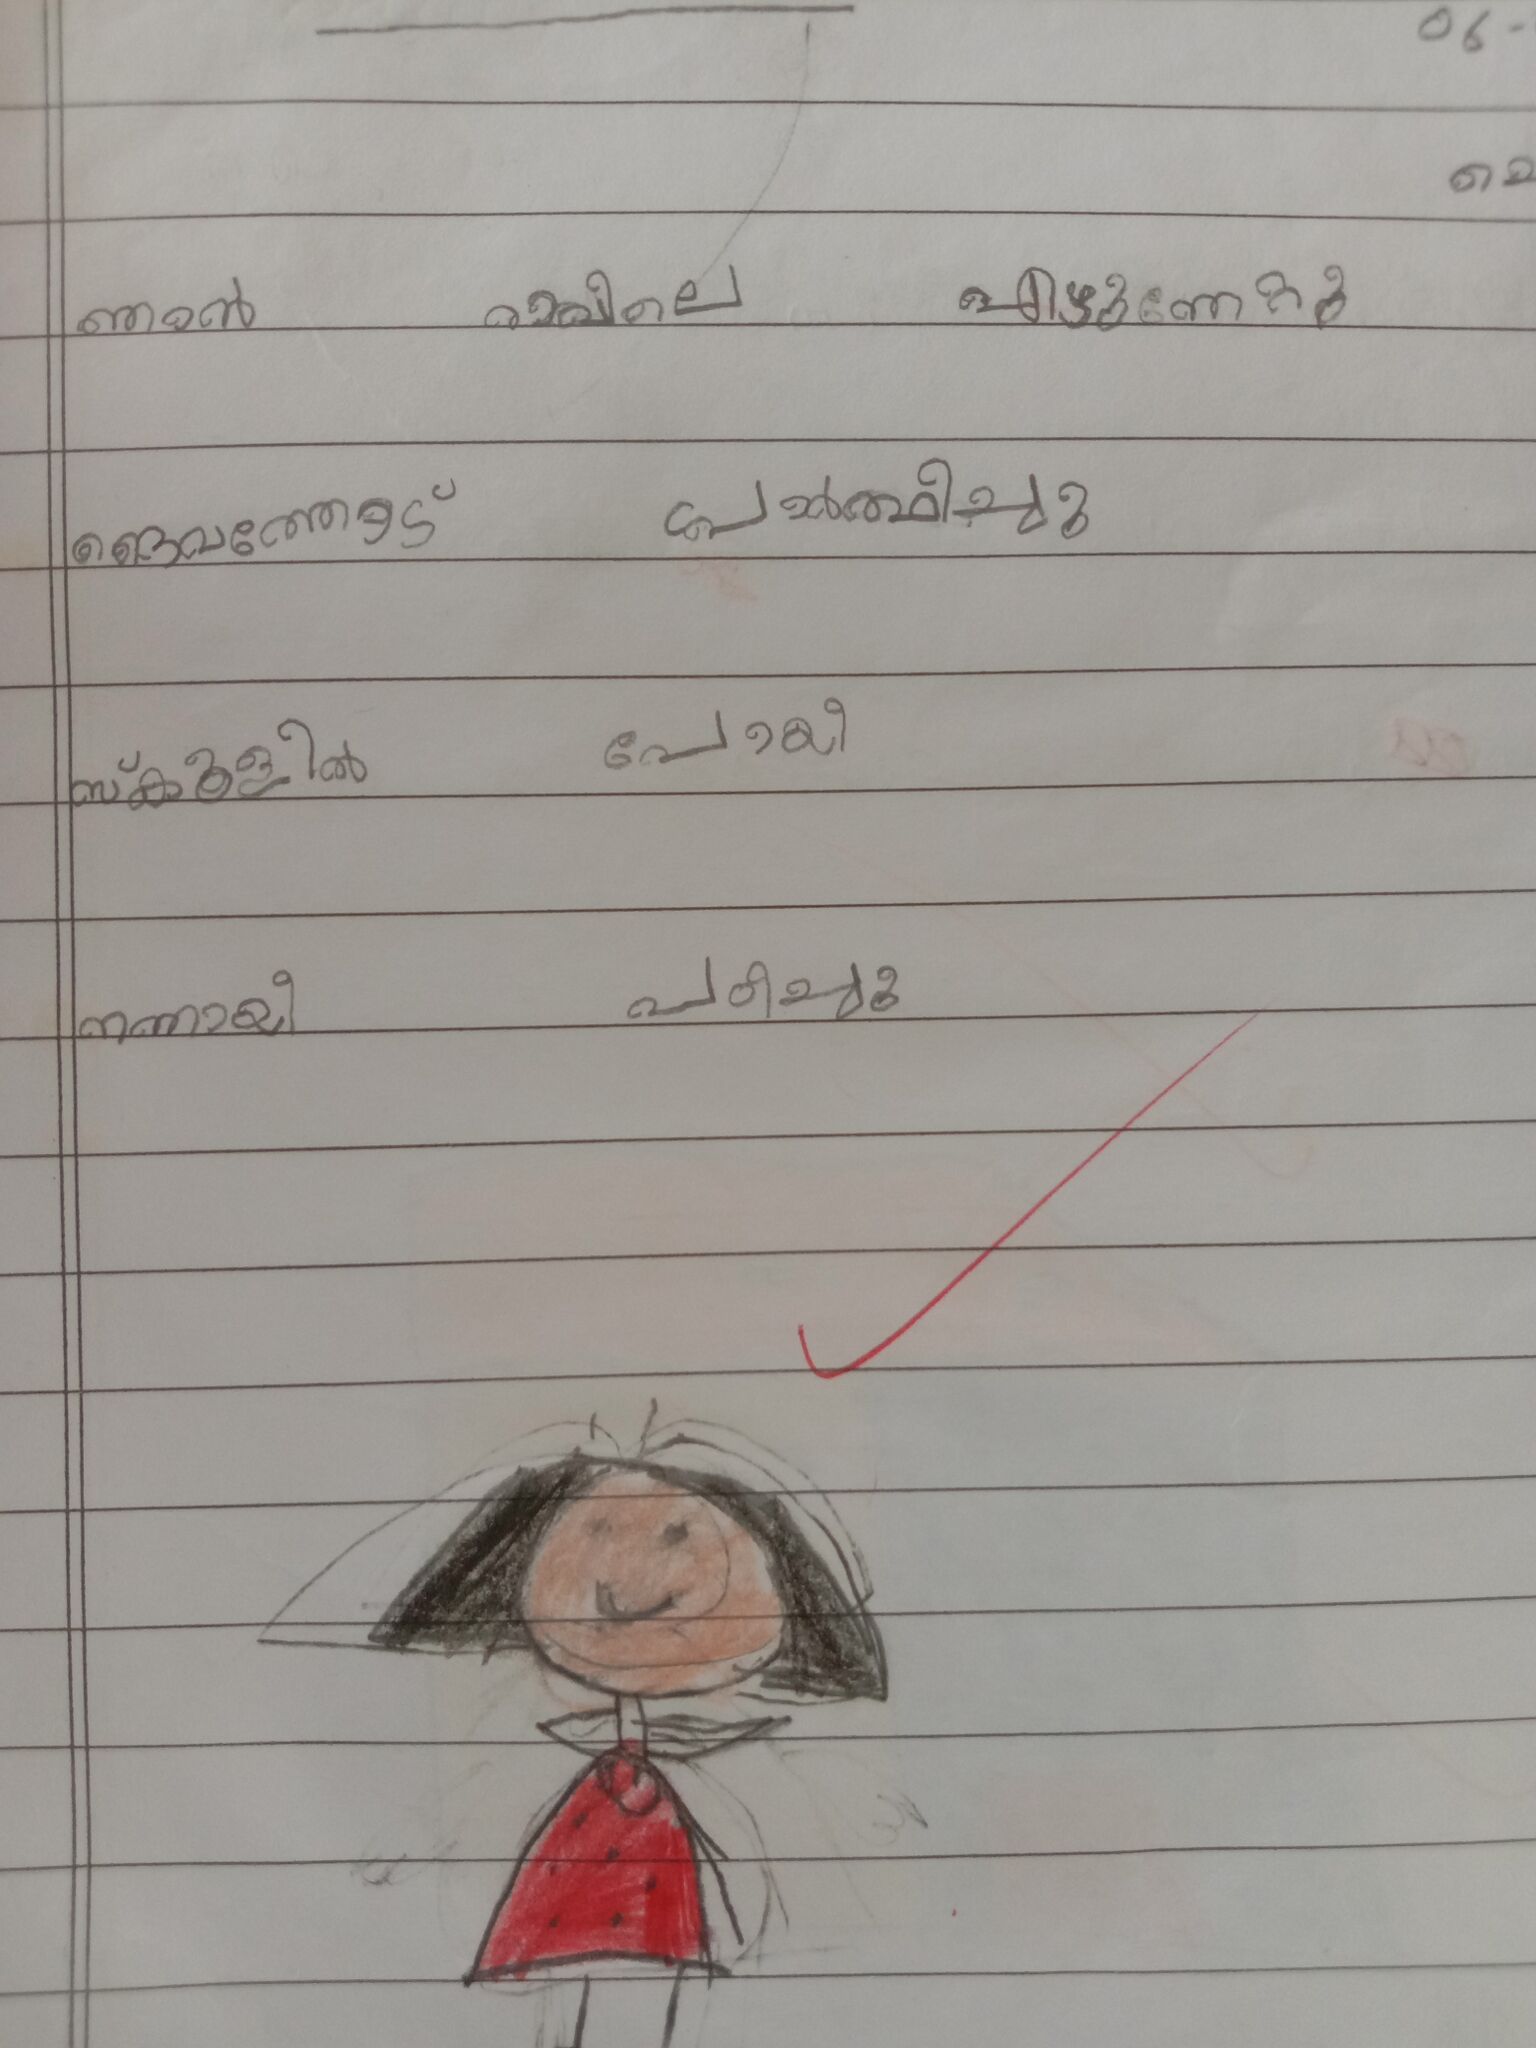 06-
ഞാൻ രാവിലെ എഴുന്നേറ്റു
ദൈവത്തോട് പ്രാർത്ഥിച്ചു
സ്കൂളിൽ പോയി
നന്നായി പഠിച്ചു